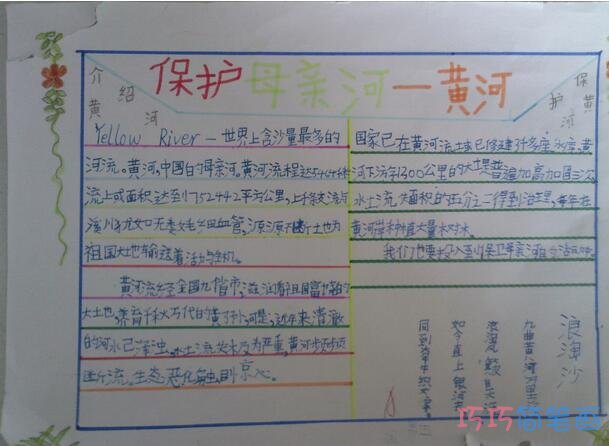 保护母亲河—黄河
介绍黄河
保护黄河
Yellow River—世界上含沙量最多的
河流。黄河,中国的母亲河。黄河流程达5464千米
流上或面积达到752442平方公里,上千条支流与
溪川犹如无数毛细血管,源源不断土也为
祖国大地输送着活力与生机。
黄河流经全国九省市,滋润着祖国富饶的
大土也,养育千秋万代的黄子孙,可是,近年来清澈
的河水已浑浊,水土流失极为严重,黄河步
断流。生态恶化触目惊心。
国家已在黄河流域已修建许多座水库,黄
河下游1300公里的大堤普遍加高加固三次,
水土流失面积的四分之一得到治理,每年在
黄河岸种植大量树木。
我们也要投入至保卫母亲河
浪淘沙
九曲黄河万里沙
浪淘风簸自天涯
如今直上银河去
同到牵牛织女家
巧巧简笔画